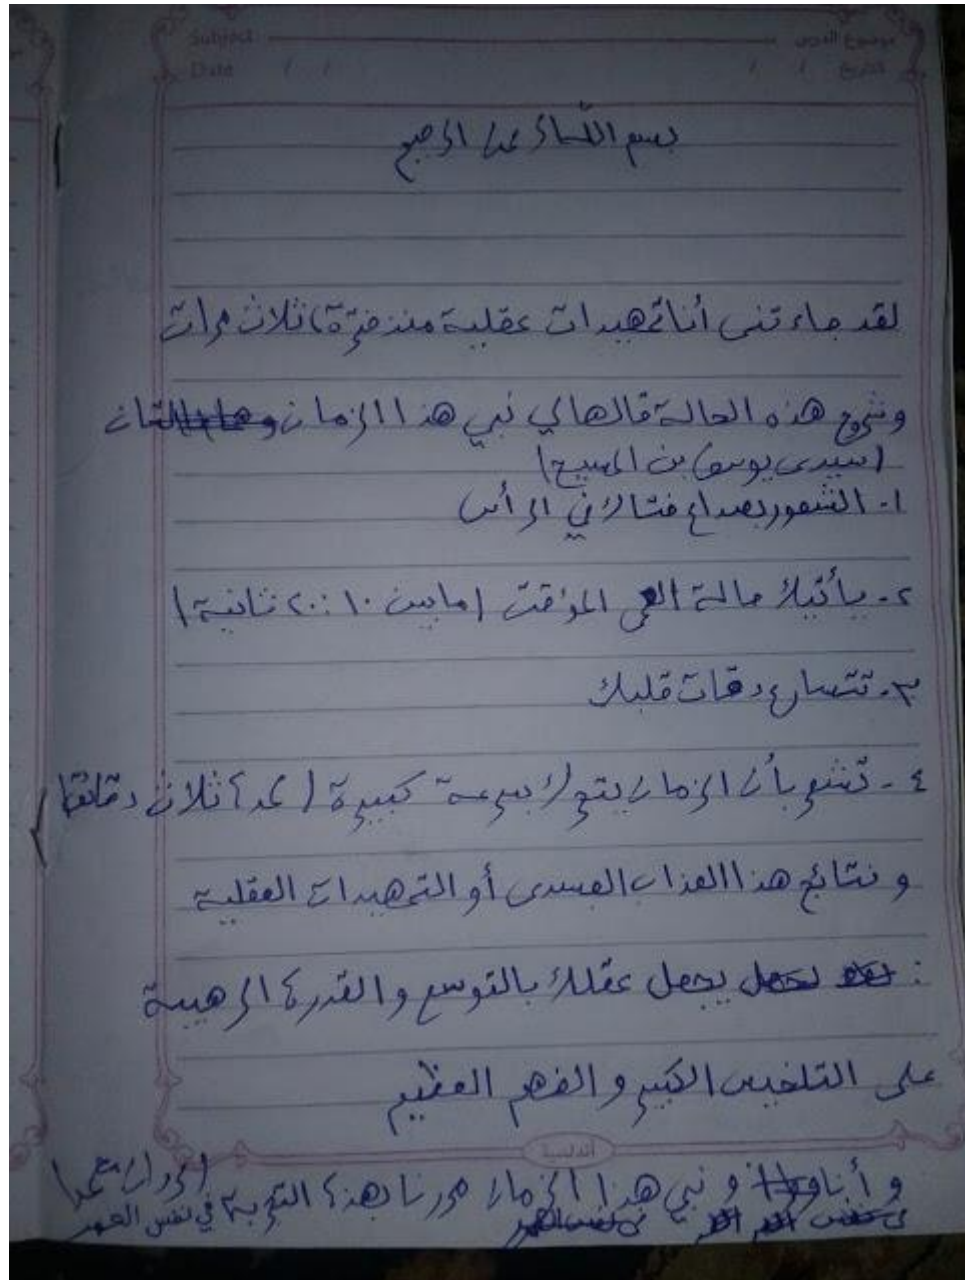 Subject
موضوع الدرس
Date / /
/ / التاريخ
بسم الله الرحمن الرحيم
لقد جاءتنى أنا تمهيدات عقلية منذ فترة، ثلاث مرات
وشرح هذه الحالة قالها لي نبي هذا الزمان
(سيدى يوسف بن المسيح)
١- الشعور بصداع في الرأس
٢- يأتيك حالة العمى المؤقت (ما بين ١٠ : ٢٠ ثانية)
٣- تتسارع دقات قلبك
٤- تشعر بأن الزمان يتحرك بسرعة كبيرة (ثلاث دقائق)
و نتائج هذا العذاب الجسدى أو التمهيدات العقلية
: يجعل عقلك بالتوسع و القدرة الرهيبة
على التلخيص الكبير و الفهم العظيم
و أنا و نبي هذا الزمان مررنا بهذه التجربة في نفس العمر